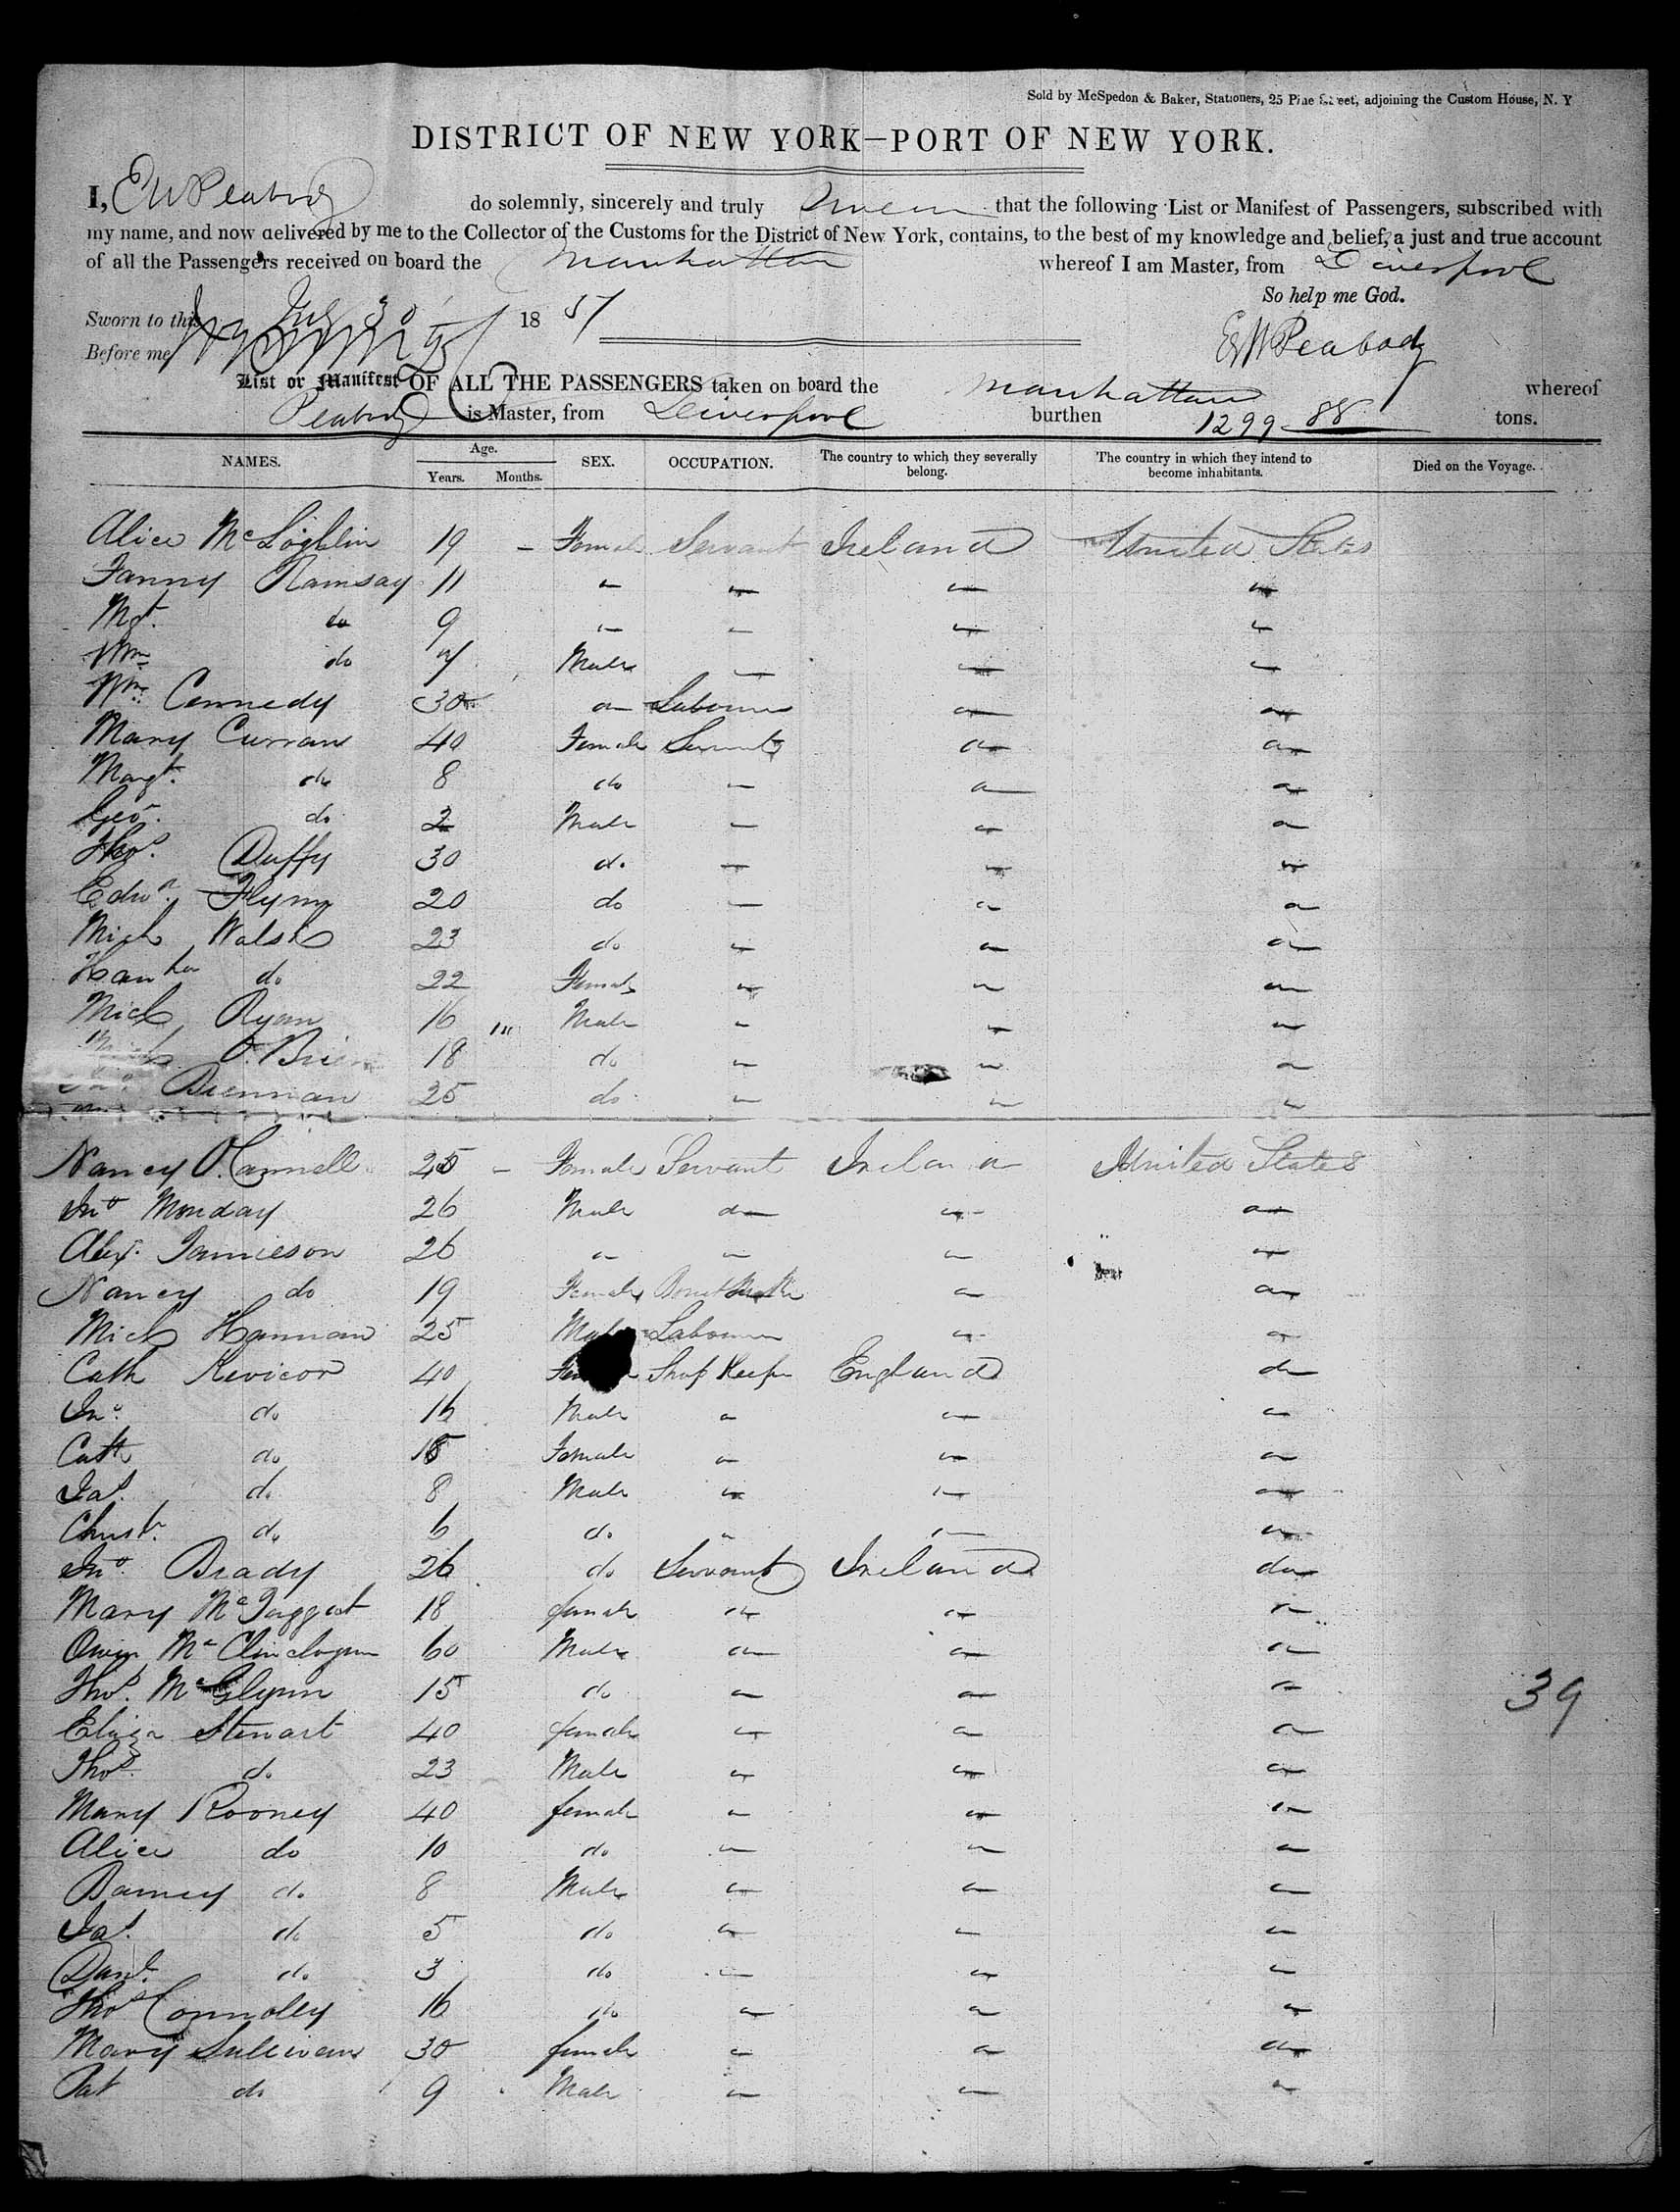 Sold by McSpedon & Baker, Stationers, 25 Pine Street, adjoining the Custom House, N. Y
DISTRICT OF NEW YORK—PORT OF NEW YORK.
I, E W Peabody do solemnly, sincerely and truly swear that the following List or Manifest of Passengers, subscribed with
my name, and now delivered by me to the Collector of the Customs for the District of New York, contains, to the best of my knowledge and belief, a just and true account
of all the Passengers received on board the Manhattan whereof I am Master, from Liverpool
So help me God.
Sworn to this July 30 1851
E W Peabody
Before me
List or Manifest OF ALL THE PASSENGERS taken on board the Manhattan whereof
Peabody is Master, from Liverpool burthen 1299 88 tons.
NAMES. Age. Years. Months. SEX. OCCUPATION. The country to which they severally belong. The country in which they intend to become inhabitants. Died on the Voyage.
Alice McLoghlin 19 – Female Servant Ireland United States
Fanny Ramsay 11 " " " "
Mgt. do 9 " " " "
Wm do 7 Male " " "
Wm. Cennedy 30 " Labourer " "
Mary Curran 40 Female Servant " "
Margt. do 8 do " " "
Geo. do 2 Male " " "
Thos. Duffy 30 do " " "
Edwd. Flynn 20 do " " "
Mich Walsh 23 do " " "
Hanh do 22 Female " " "
Mich Ryan 16 Male " " "
Mich O'Brien 18 do " " "
Brennan 25 do " " "
Nancy O'Connell 25 – Female Servant Ireland United States
Jno Monday 26 Male do " "
Alex. Jamieson 26 " " " "
Nancy do 19 Female Bonnet Maker " "
Mich Hannan 25 Male Labourer " "
Cath Kevicor 40 Female Shop Keeper England do
Jno. do 16 Male " " "
Cath do 15 Female " " "
Jas. do 8 Male " " "
Christr. do 6 do " " "
Jno. Brady 26 do Servant Ireland do
Mary McTaggart 18 female " " "
Owen Mc 60 Male " " "
Thos. McGlynn 15 do " " "
39
Eliza Stewart 40 female " " "
Thos. do 23 Male " " "
Mary Rooney 40 female " " "
Alice do 10 do " " "
Barney do 8 Male " " "
Jas. do 5 do " " "
Danl. do 3 do " " "
Thos Connolly 16 do " " "
Mary Sullivan 30 female " " "
Pat do 9 Male " " "